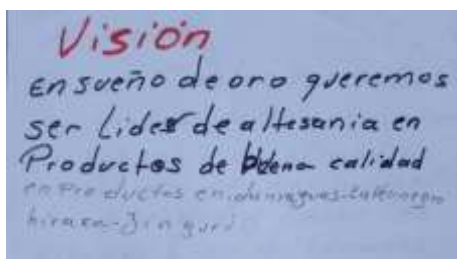 Visión
En sueño de oro queremos
ser Lider de altesania en
Productos de buena calidad
en Productos en